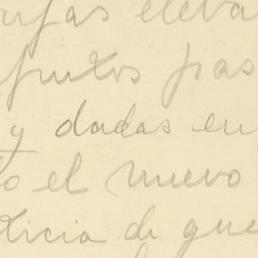 eleva
frutos pas
y dadas en
o el nuevo
ticia de que